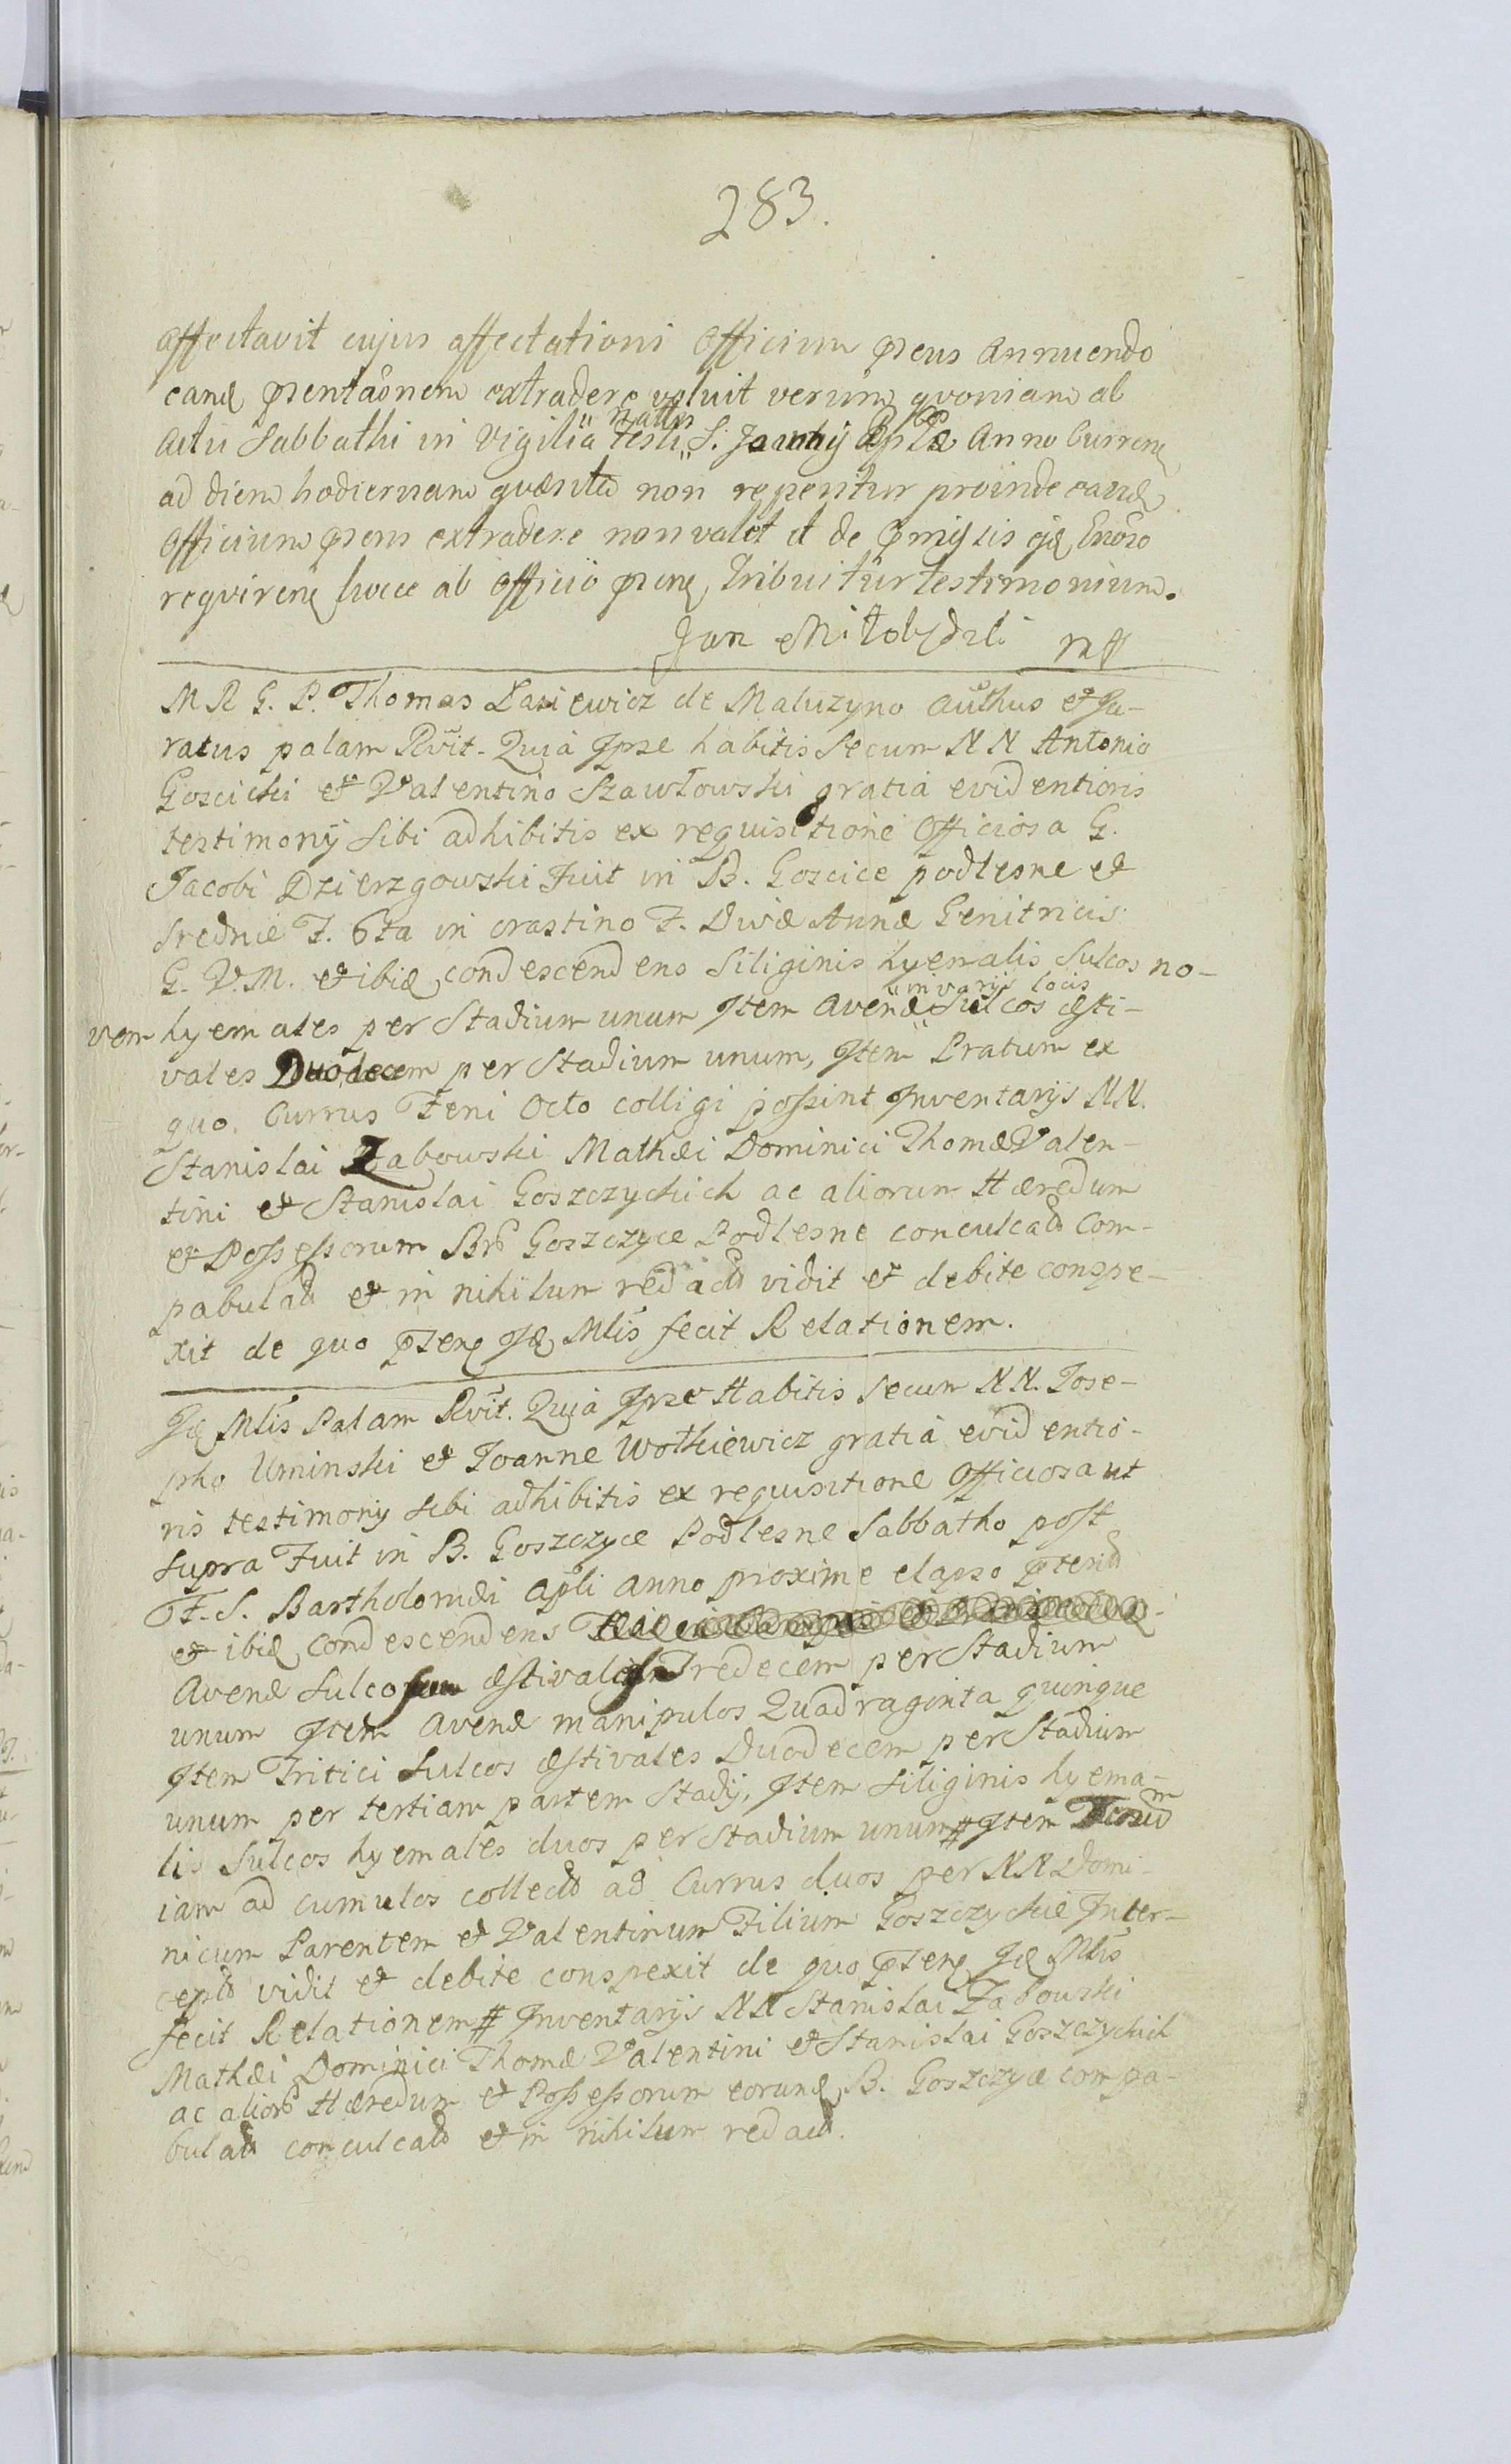 283.
affectavit cujus affectationi Officium pńs annuendo
eand pntãonem extradere voluit verum qvoniam ab
actu Sabbathi in Vigilia festi Natlis S. Anno Curren
ad diem hodiernam qvæsita non reperitur proinde eand
Officium pńs extradere non valet et de pmissis ejd
reqvirenẽ hocce ab Officio pńe Tribuitur testimonium.
Jan Miłobędzki mpp
M R G. P. Thomas Lasiewicz de Maluzyno Authus et Ju-
ratus palam Rvit. Quia Ipse habitis Secum N N Antonio
Goscicki et Valentino Szawłowski gratia evidentioris
testimonij sibi adhibitis ex requisitione Officiosa G.
Jacobi Dzierzgowski Fuit in B. Goscice podlesne et
Srednie F. 6ta in crastino F. Divæ Annæ Genitricis
G. V. M. et ibid condescendens Siliginis hyemalis Sulcos no-
vem hyemales per Stadium unum Item Avenæ in varijs locis Sulcos æsti-
vales Duodecem per Stadium unum, Item Pratum ex
quo Currus Feni Octo colligi possint Inventarijs NN.
Stanislai Zabowski Mathæi Dominici Thomæ Valen-
tini et Stanislai Goszczyckich ac aliorum Hæredum
et Possessorum Brũ Goszczyce Podlesne conculcat Com-
pabulat et in nihilum redact vidit et debite conspe-
xit de quo pzen Id Mlis fecit Relationem.
Id Mlis Palam Rvit. Quia Ipse Habitis Secum NN. Jose-
pho Uminski et Joanne Wotkiewicz gratia evidentio-
ris testimonij sibi adhibitis ex requisitione Officiosa ut
supra Fuit in B. Goszczyce Podlesne Sabbatho post
F. S. Bartholomæi Apli anno proxime elapso pterit
et ibid condescendens
Avenæ Sulcos æstivales Tredecem per Stadium
unum Item Avenæ manipulos Quadraginta quinque
Item Tritici Sulcos æstivales Duodecem per Stadium
unum per tertiam partem Stadij, Item Siliginis hyema-
lis Sulcos hyemales duos per Stadium unum # Item
iam ad cumulos collect ad Currus duos per NN Domi-
nicum Parentem et Valentinum Filium Goszczyckie Inter-
cept vidit et debite conspexit de quo pzen Id Mlis
fecit Relationem # Inventarijs NN Stanislai Zabowski
Mathæi Dominici Thomæ Valentini et Stanislai Goszczyckich
ac alior Hæredum et Possessorum eorund B. Goszczyce compa-
bulat conculcat et in nihilum redact.